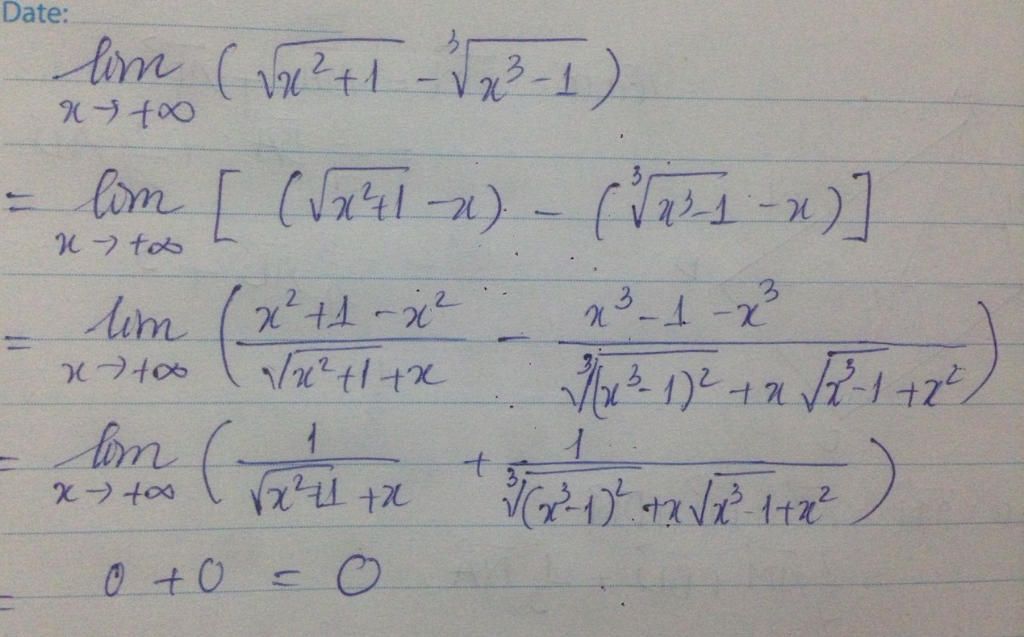 Date:
lim x→+∞ (√(x²+1) - ∛(x³-1))
= lim x→+∞ [(√(x²+1) - x) - (∛(x³-1) - x)]
= lim x→+∞ ((x²+1-x²)/(√(x²+1)+x) - (x³-1-x³)/(∛((x³-1)²) + x√(x³-1) + x²))
= lim x→+∞ (1/(√(x²+1)+x) + 1/(∛((x³-1)²) + x√(x³-1) + x²))
= 0 + 0 = 0